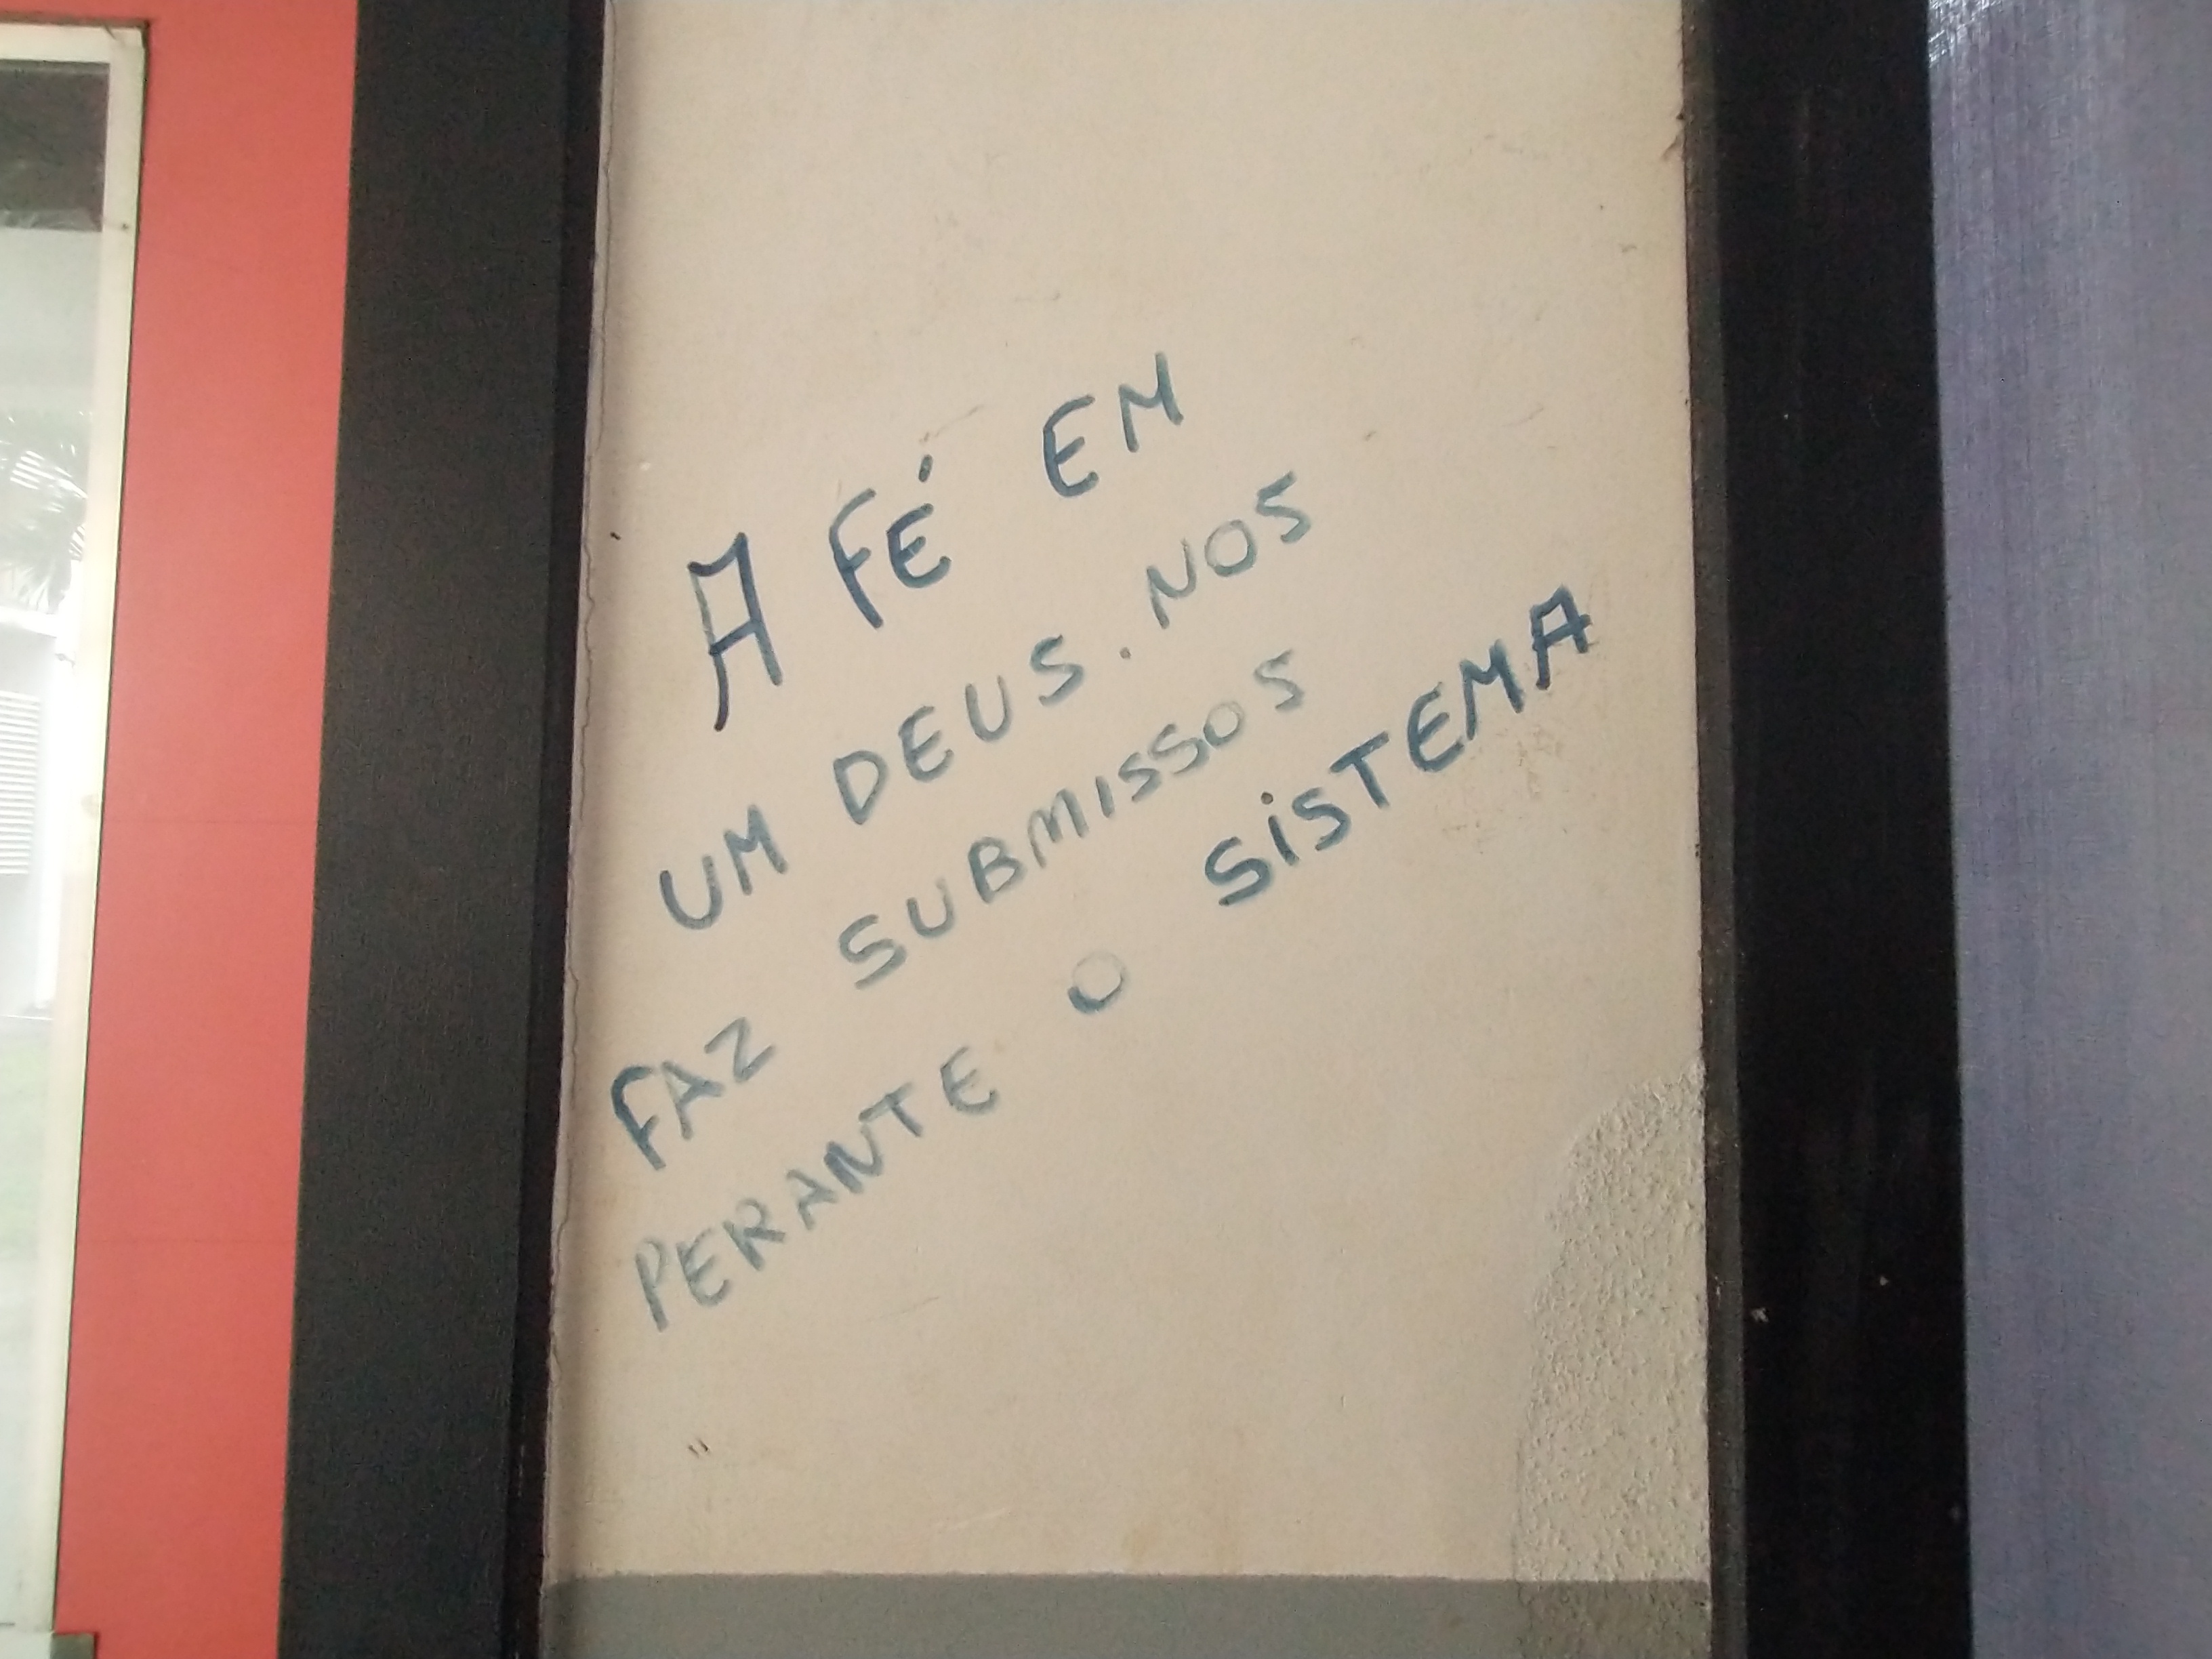 A FÉ EM
UM DEUS. NOS
FAZ SUBMISSOS
PERANTE O SiSTEMA